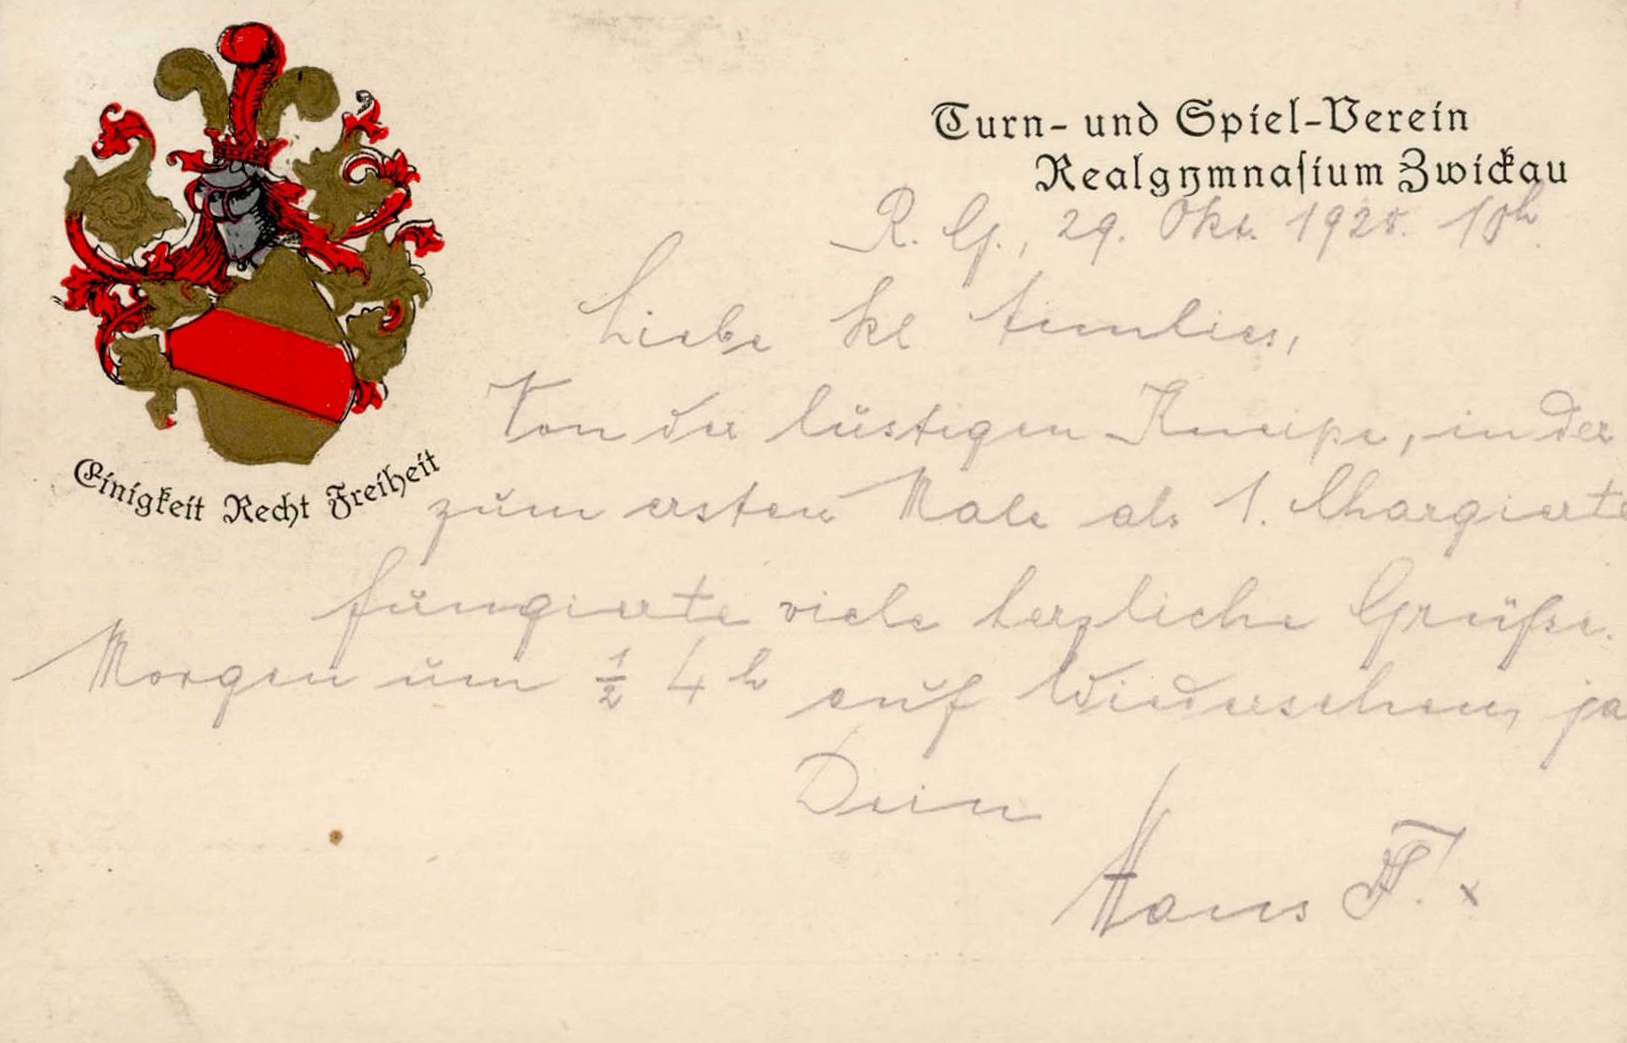 Turn- und Spiel-Verein
Realgymnasium Zwickau
R. G., 29. Okt. 1925. 10h.
Liebe kl Annlies,
Von der lustigen Kneipe, in der
zum ersten Male als 1. Chargierte
fungierte viele herzliche Grüße.
Morgen um ½ 4h auf Wiedersehen, ja
Dein
Hans
Einigkeit Recht Freiheit